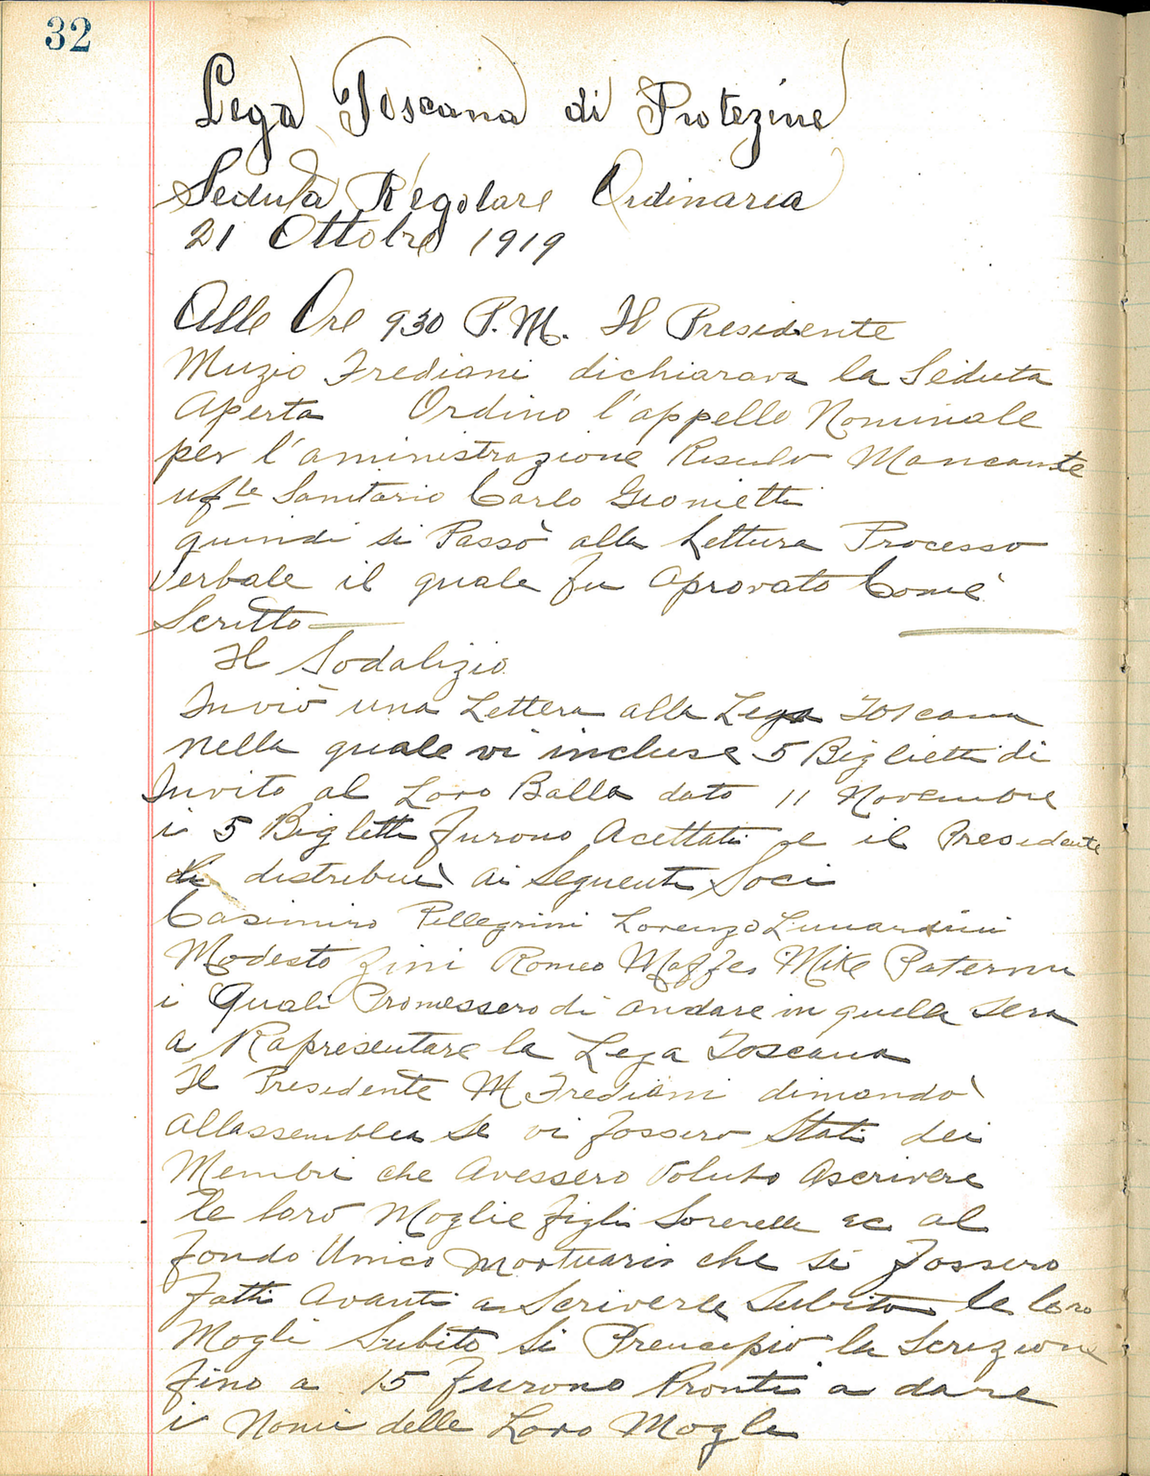 32
Lega Toscana di Protezine
Seduta Regolare Ordinaria
21 Ottobre 1919
Alle Ore 9.30 P.M. Il Presidente
Muzio Frediani dichiarava la Seduta
Aperta Ordino l'appello Nominale
per l'aministrazione Risulo Mancante
uf le Sanitario Carlo Gionietti
quindi si Passò alla Lettura Processo
Verbale il quale fu Aprovato Come
Scritto
Il Sodalizio
Inviò una Lettera alla Lega Toscana
nella quale vi incluse 5 Biglietti di
Invito al Loro Ballo dato 11 Novembre
i 5 Biglitti furono Acettati e il Presidente
li distribuì ai Seguenti Soci
Casimiro Pellegrini Lorenzo Lunardini
Modesto Zini Romeo Maffei Mike Paterni
i Quali Promessero di andare in quella Sera
a Rapresentare la Lega Toscana
Il Presidente M Frediani dimandò
allassemblea Se vi fossero Stati dei
Membri che Avessero Voluto Ascrivere
le loro Moglie figli Sorerelle ec al
fondo Unico Mortuario che si fossero
fatti Avanti a Scriverle Subito le loro
Mogli Subito Si Prencipio la Scrizione
fino a 15 furono Pronti a dare
i Nomi delle Loro Mogle